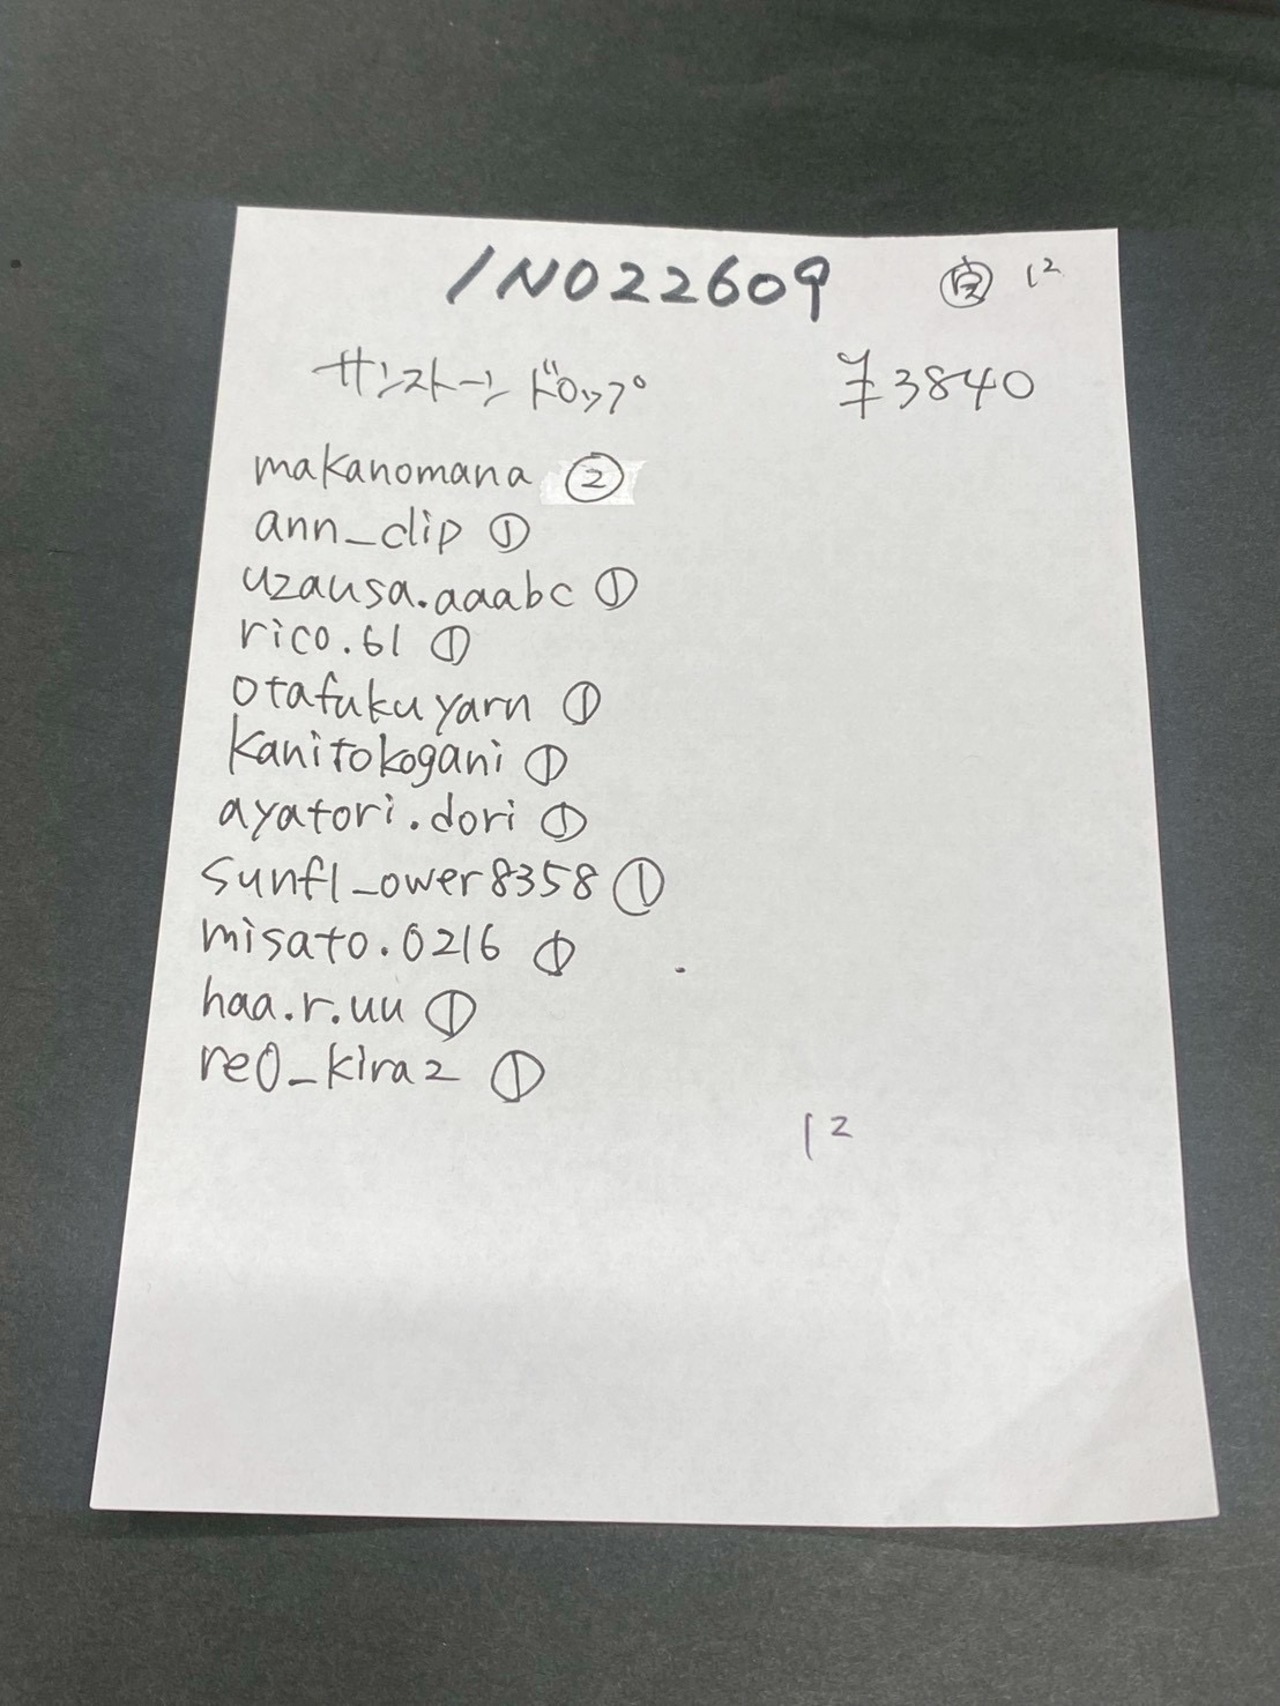 INO22609 12
サンストーンドロップ ¥3840
makanomana ②
ann_clip ①
uzausa.aaabc ①
rico.61 ①
otafukuyarn ①
kanitokogani ①
ayatori.dori ①
sunfl_ower8358 ①
misato.0216 ①
haa.r.uu ①
re0_kira2 ①
12